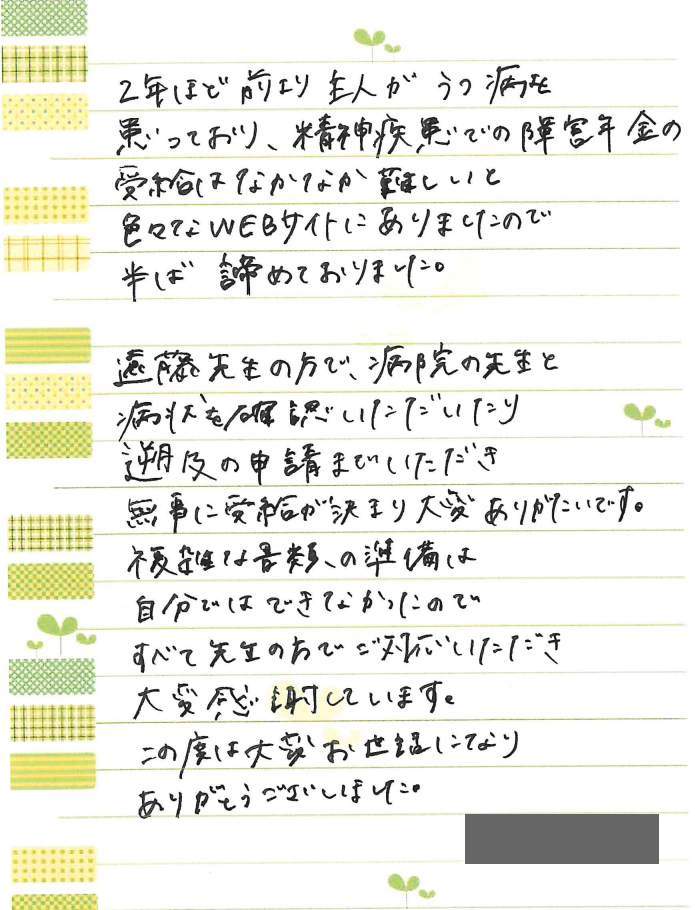 2年ほど前より主人がうつ病を
患っており、精神疾患での障害年金の
受給はなかなか難しいと
色々なWEBサイトにありましたので
半ば諦めておりました。
遠藤先生の方で、病院の先生と
病状を確認いただいたり
遡及の申請までいただき
無事に受給が決まり大変ありがたいです。
複雑な書類の準備は
自分ではできなかったので
すべて先生の方でご対応いただき
大変感謝しています。
この度は大変お世話になり
ありがとうございました。